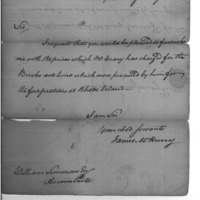 Sir
I request that you would be pleased to furnish
me with the prices which Mr Crary has charged for the
Bricks and lime which were procured by him for
the fortifications at Rhode Island
I am Sir
Your obed servant
James McHenry
William Simmons Esq
Accountant